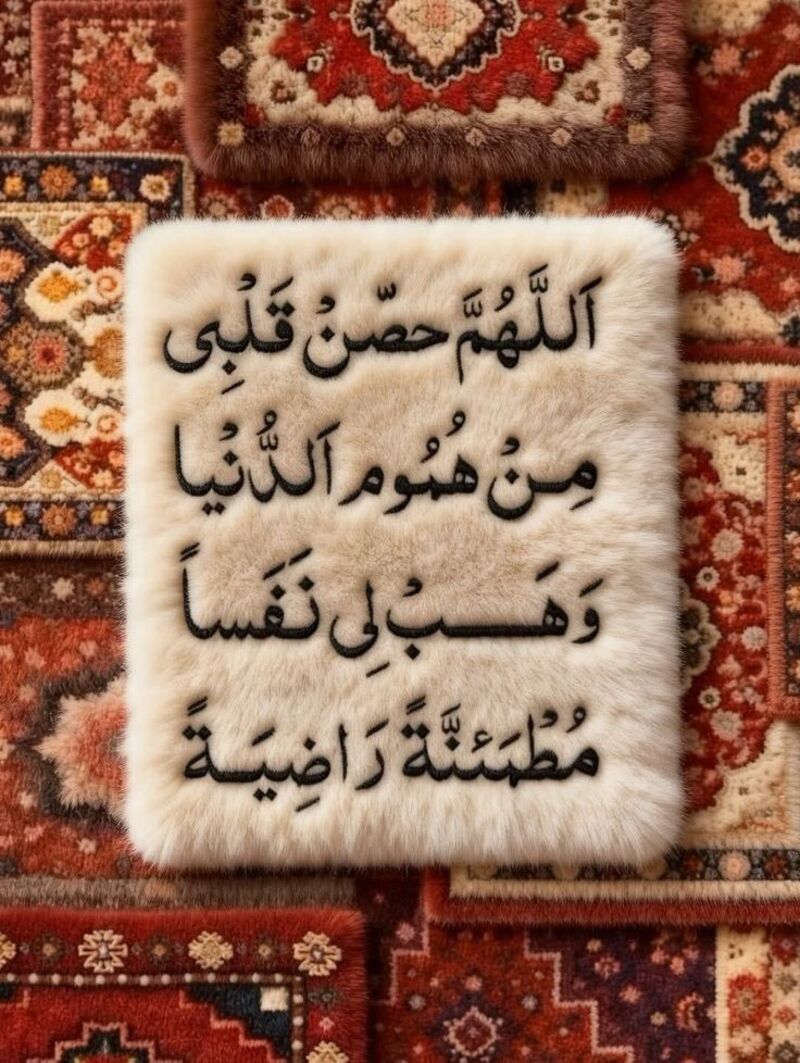 اَللَّهُمَّ حصّنْ قَلْبِى
مِنْ هُمُوم اَلدُّنْيا
وَهَبْ لِى نَفَساً
مُطْمَئنَّةً رَاضِيَةً